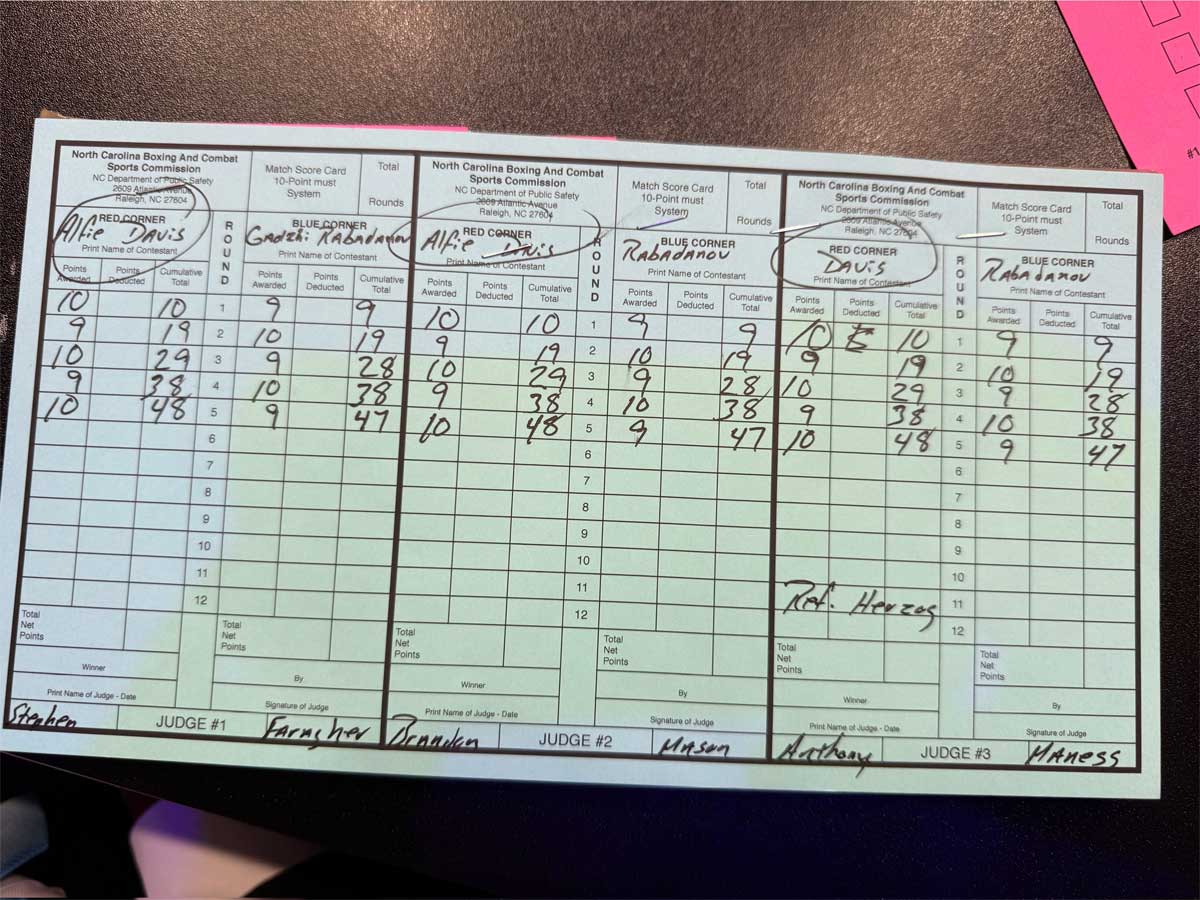 North Carolina Boxing And Combat
Sports Commission
NC Department of Public Safety
2609 Atlantic Avenue
Raleigh, NC 27604
Match Score Card
10-Point must
System
Total
Rounds
RED CORNER
Alfie Davis
Print Name of Contestant
ROUND
BLUE CORNER
Gadzhi Rabadanov
Print Name of Contestant
Points Awarded Points Deducted Cumulative Total Points Awarded Points Deducted Cumulative Total
10 10 1 9 9
9 19 2 10 19
10 29 3 9 28
9 38 4 10 38
10 48 5 9 47
6
7
8
9
10
11
12
Total
Net
Points
Total
Net
Points
Winner
By
Print Name of Judge - Date
Signature of Judge
Stephen JUDGE #1 Faragher
North Carolina Boxing And Combat
Sports Commission
NC Department of Public Safety
2609 Atlantic Avenue
Raleigh, NC 27604
Match Score Card
10-Point must
System
Total
Rounds
RED CORNER
Alfie Davis
Print Name of Contestant
ROUND
BLUE CORNER
Rabadanov
Print Name of Contestant
Points Awarded Points Deducted Cumulative Total Points Awarded Points Deducted Cumulative Total
10 10 1 9 9
9 19 2 10 19
10 29 3 9 28
9 38 4 10 38
10 48 5 9 47
6
7
8
9
10
11
12
Total
Net
Points
Total
Net
Points
Winner
By
Print Name of Judge - Date
Signature of Judge
JUDGE #2 Mason
North Carolina Boxing And Combat
Sports Commission
NC Department of Public Safety
2609 Atlantic Avenue
Raleigh, NC 27604
Match Score Card
10-Point must
System
Total
Rounds
RED CORNER
Davis
Print Name of Contestant
ROUND
BLUE CORNER
Rabadanov
Print Name of Contestant
Points Awarded Points Deducted Cumulative Total Points Awarded Points Deducted Cumulative Total
10 10 1 9 9
9 19 2 10 19
10 29 3 9 28
9 38 4 10 38
10 48 5 9 47
6
7
8
9
10
Ref. Herzog 11
12
Total
Net
Points
Total
Net
Points
Winner
By
Print Name of Judge - Date
Signature of Judge
Anthony JUDGE #3 Maness
#1